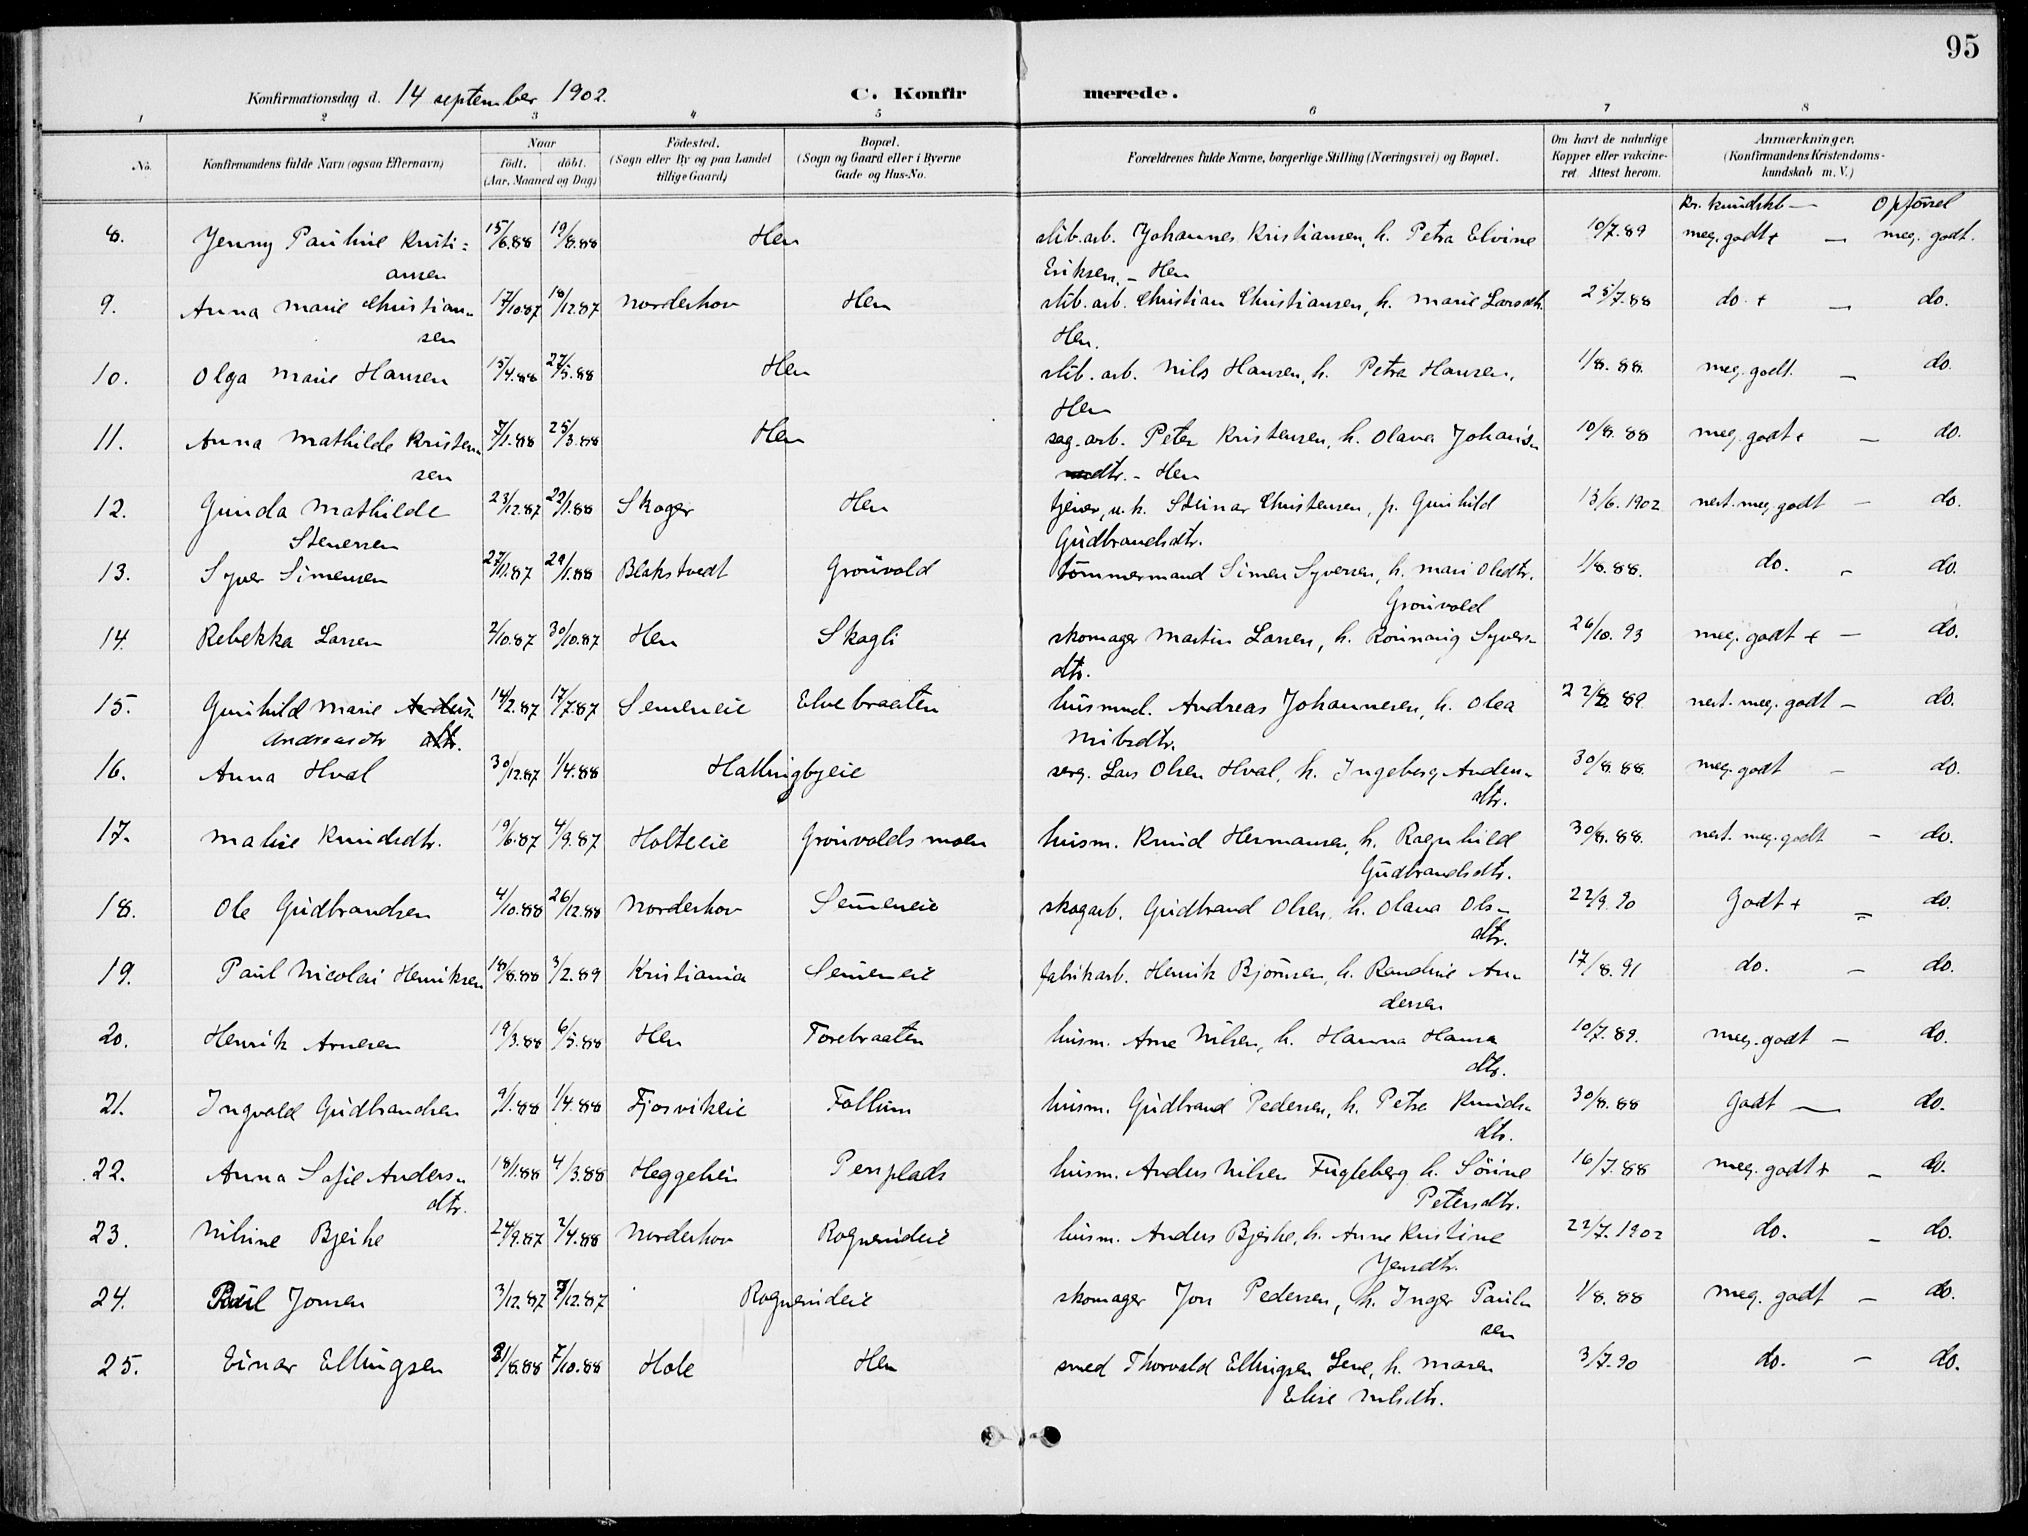 95
Konfirmationsdag d. 14 september 1902.
C. Konfirmerede.
1 2 3 4 5 6 7 8
No. Konfirmandens fulde Navn (ogsaa Efternavn) Naar födt. döbt. (Aar, Maaned og Dag) Födested. (Sogn eller By og paa Landet tillige Gaard) Bopæl. (Sogn og Gaard eller i Byerne Gade og Hus-No. Forældrenes fulde Navne, borgerlige Stilling (Næringsvei) og Bopæl. Om havt de naturlige Kopper eller vakcineret. Attest herom. Anmærkninger. (Konfirmandens Kristendomskundskab m. V.)
Kr. kundskb — Opførsel
8. Jenny Pauline Kristi= 15/6.88 19/8.88 Hen slib.arb. Johannes Kristiansen, h. Petra Elvine 10/7.89 meg. godt + — meg. godt.
ansen Eriksen, – Hen
9. Anna Marie Christian- 17/10.87 18/12.87 Norderhov Hen slib.arb. Christian Christiansen, h. Marie Larsdtr. 25/7.88 do. + — do.
sen Hen.
10. Olga Marie Hansen 15/4.88 27/5.88 Hen slib. arb. Nils Hansen, h. Petra Hansen, 1/8.88. meg. godt. — do.
Hen
11. Anna Mathilde Kristen- 7/1.88 25/3.88 Hen sag.arb. Peter Kristensen, h. Olava Johans- 10/8.88 meg. godt + — do.
sen dtr. – Hen
12. Gunda Mathilde 23/12.87 22/1.88 Skoger Hen tjener, u.k. Steinar Christensen, p. Gunhild 13/6.1902 nest. meg. godt — do.
Stenersen Gudbrandsdtr.
13. Syver Simensen 27/11.87 29/1.88 Blakstvedt Grönvold tömmermand Simen Syversen, h. Mari Olsdtr. 1/8.88. do. – do.
Grönvold
14. Rebekka Larsen 2/10.87 30/10.87 Hen Skagli skomager Martin Larsen, h. Rönnaug Syvers- 26/10.93 meg. godt + — do.
dtr.
15. Gunhild Marie 14/2.87 17/7.87 Semeneie Elvebraaten husmd. Andreas Johannesen, h. Olea 22/8.89 nest. meg. godt — do.
Andreasdtr Nilsdtr.
16. Anna Hval 30/12.87 1/4.88 Hallingbyeie serg. Lars Olsen Hval, h. Ingeborg Anders- 30/8.88. meg. godt — do.
dtr.
17. Malise Knudsdtr. 19/6.87 4/9.87 Holteeie Grönvolds moen husm. Knud Hermansen, h. Ragnhild 30/8.88. nest. meg. godt – do.
Gudbrandsdtr.
18. Ole Gudbrandsen 4/10.88 26/12.88 Norderhov Semeneie skogarb. Gudbrand Olsen, h. Olava Ols- 22/9.90 Godt + — do.
dtr.
19. Paul Nicolai Henriksen 18/8.88 3/2.89 Kristiania Semeneie fabrikarb. Henrik Björnsen, h. Randine An- 17/8.91 do. — do.
dersen
20. Henrik Arnesen 19/3.88 6/5.88 Hen Torebraaten husm. Arne Nilsen, h. Hanna Hans- 10/7.89. meg. godt — do.
dtr.
21. Ingvald Gudbrandsen 9/1.88 1/4.88 Fjosvikeie Follum husm. Gudbrand Pedersen, h. Petra Knuds- 30/8.88 Godt — do.
dtr.
22. Anna Sofie Anders- 18/1.88 4/3.88 Heggelien Persplads husm. Anders Nilsen Fugleberg h. Sörine 16/7.88 meg. godt + — do.
dtr. Petersdtr.
23. Nilsine Bjerke 24/9.87 2/4.88 Norderhov Rognerudeie husm. Anders Bjerke, h. Anne Kristine 22/7.1902 do. – do.
Jensdtr.
24. Paul Jonsen 3/12.87 7/12.87 Rognerudeie skomager Jon Pedersen, h. Inger Pauls- 1/8.88 meg. godt — do.
sen
25. Einar Ellingsen 31/8.88 7/10.88 Hole Hen smed Thorvald Ellingsen Lene, h. Maren 3/7.90 do. — do.
Elise Nilsdtr.